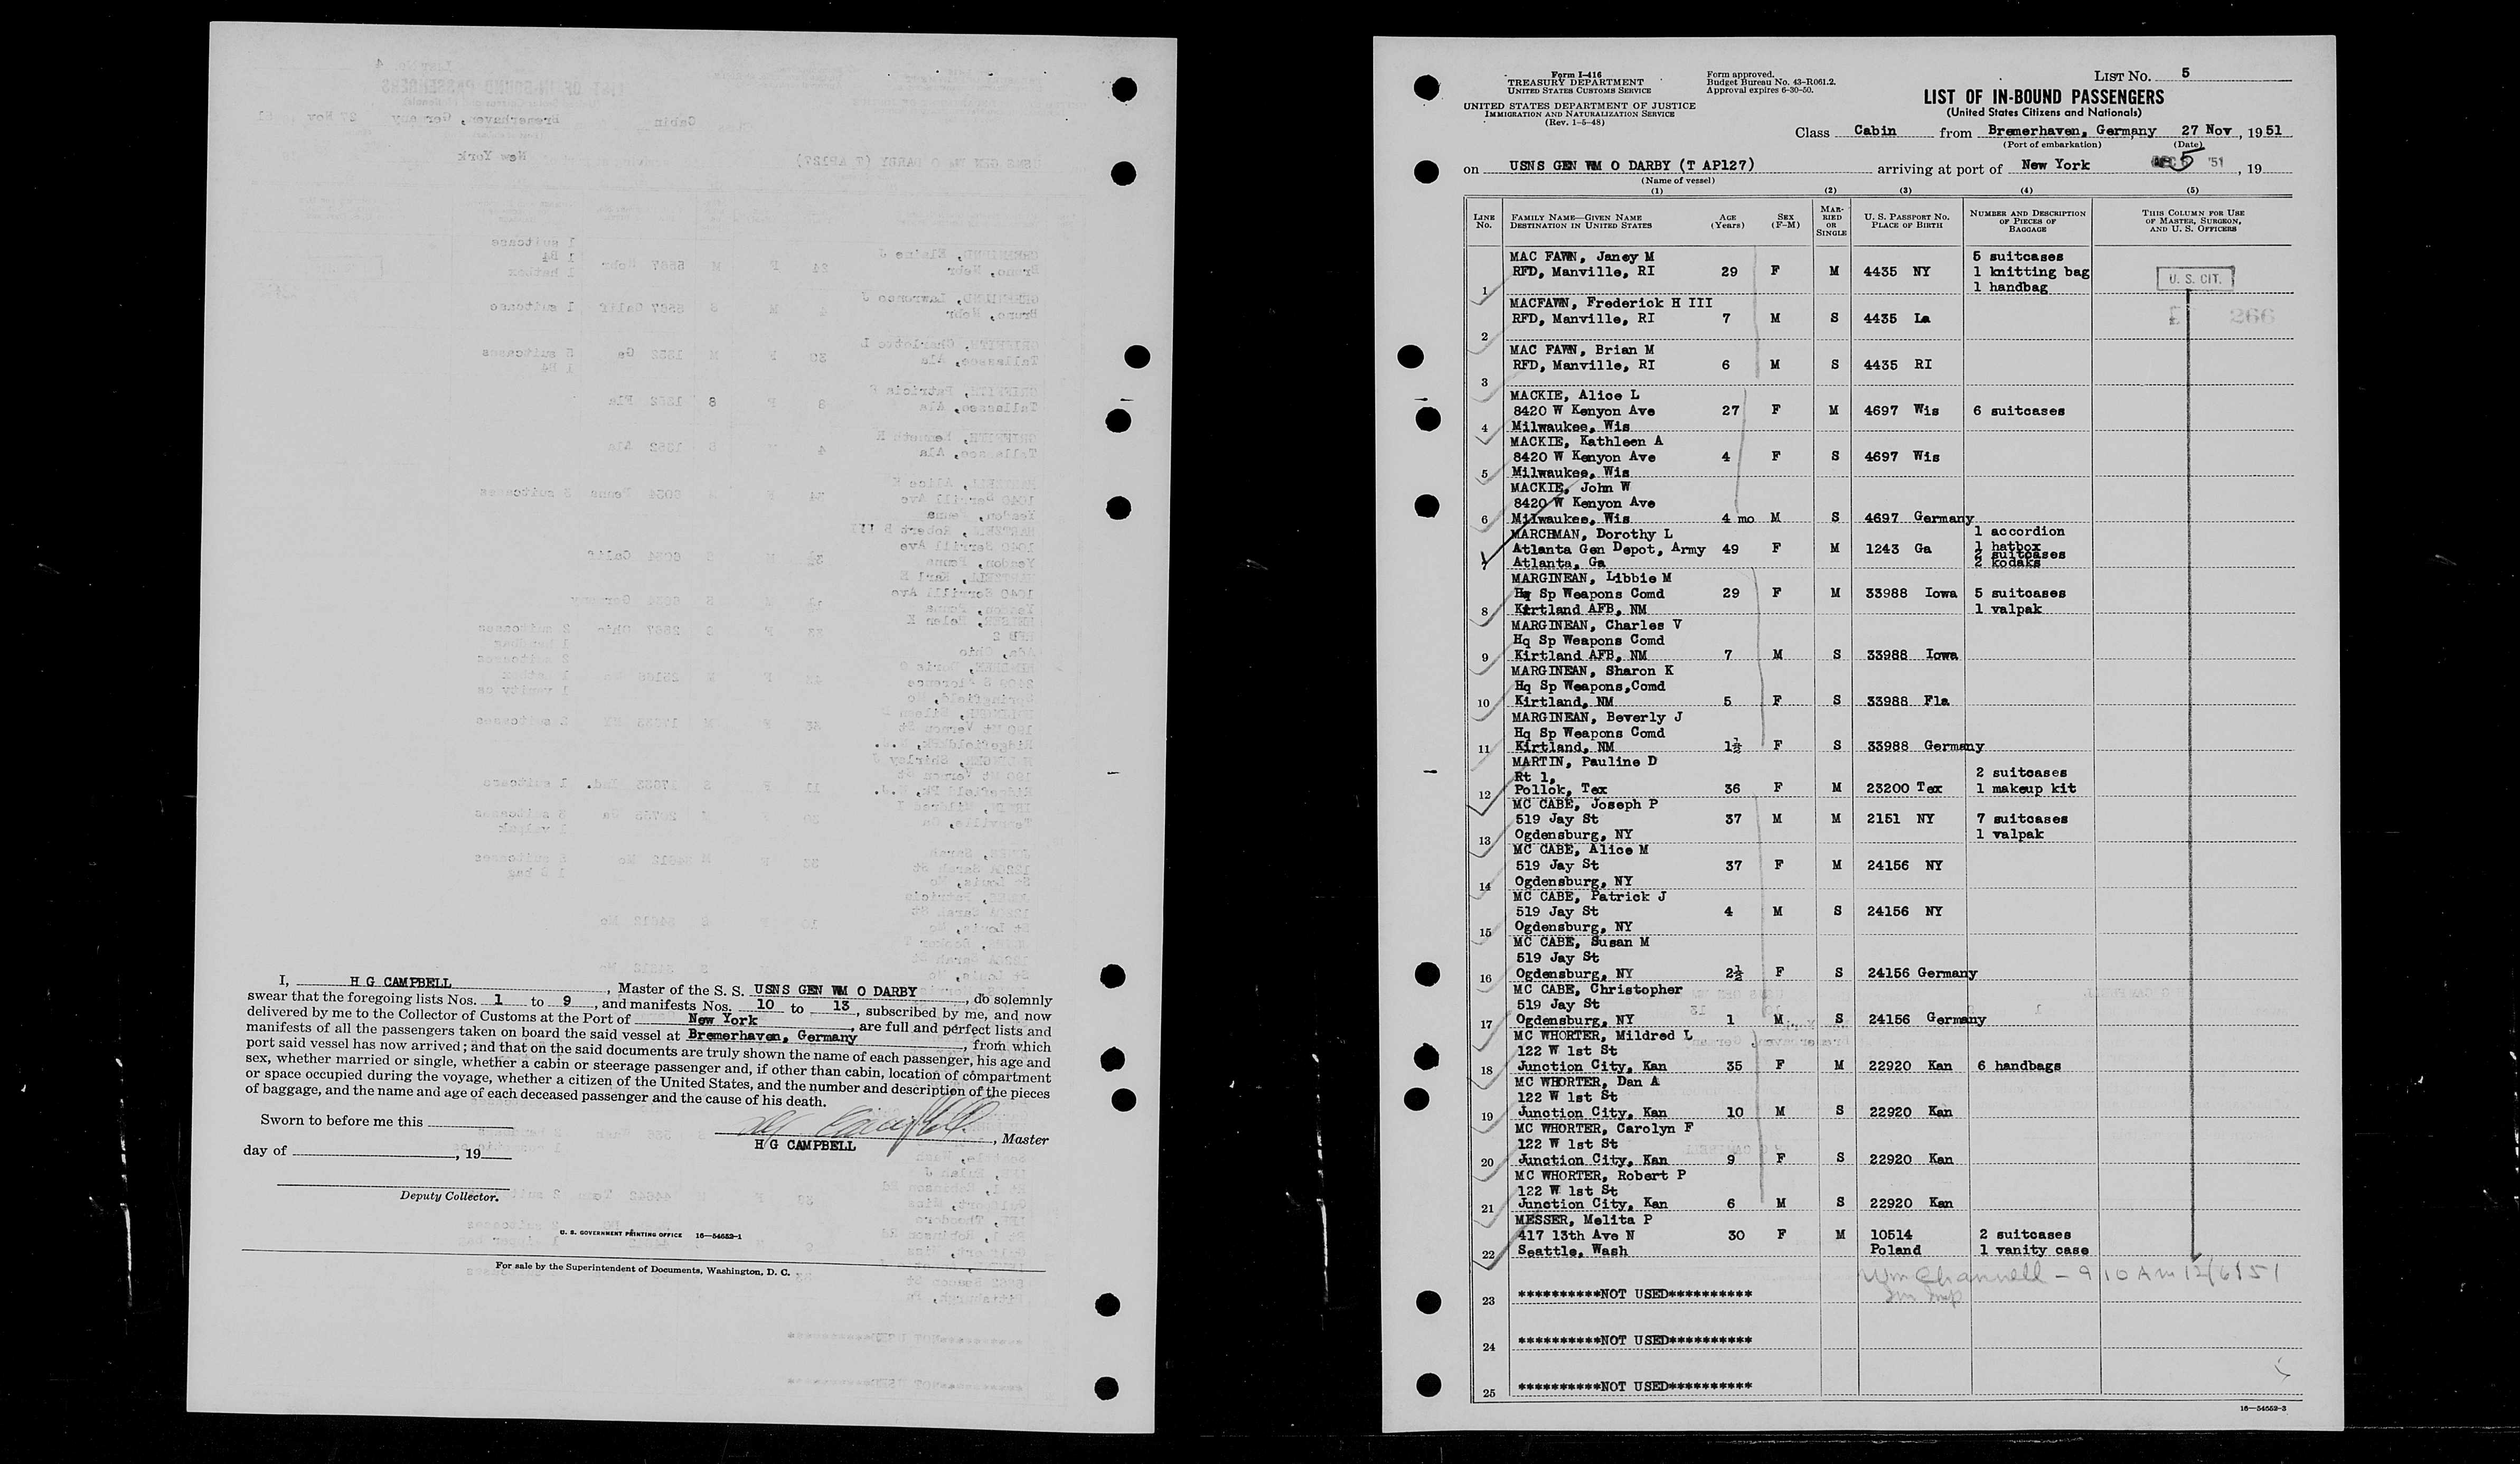 I, H G CAMPBELL , Master of the S. S. USNS GEN WM O DARBY , do solemnly
swear that the foregoing lists Nos. 1 to 9 , and manifests Nos. 10 to 13 , subscribed by me, and now
delivered by me to the Collector of Customs at the Port of New York , are full and perfect lists and
manifests of all the passengers taken on board the said vessel at Bremerhaven, Germany , from which
port said vessel has now arrived; and that on the said documents are truly shown the name of each passenger, his age and
sex, whether married or single, whether a cabin or steerage passenger and, if other than cabin, location of compartment
or space occupied during the voyage, whether a citizen of the United States, and the number and description of the pieces
of baggage, and the name and age of each deceased passenger and the cause of his death.
Sworn to before me this
H G CAMPBELL , Master
day of , 19
Deputy Collector.
U. S. GOVERNMENT PRINTING OFFICE 16—54652-1
For sale by the Superintendent of Documents, Washington, D. C.
Form I-416
TREASURY DEPARTMENT
UNITED STATES CUSTOMS SERVICE
UNITED STATES DEPARTMENT OF JUSTICE
IMMIGRATION AND NATURALIZATION SERVICE
(Rev. 1-5-48)
Form approved.
Budget Bureau No. 43-R061.2.
Approval expires 6-30-50.
LIST No. 5
LIST OF IN-BOUND PASSENGERS
(United States Citizens and Nationals)
Class Cabin from Bremerhaven, Germany 27 Nov , 1951
(Port of embarkation) (Date)
on USNS GEN WM O DARBY (T AP127) arriving at port of New York 5 '51 , 19
(Name of vessel)
(1) (2) (3) (4) (5)
LINE No. FAMILY NAME—GIVEN NAME DESTINATION IN UNITED STATES AGE (Years) SEX (F-M) MARRIED OR SINGLE U. S. PASSPORT NO. PLACE OF BIRTH NUMBER AND DESCRIPTION OF PIECES OF BAGGAGE THIS COLUMN FOR USE OF MASTER, SURGEON, AND U. S. OFFICERS
MAC FAWN, Janey M 5 suitcases
RFD, Manville, RI 29 F M 4435 NY 1 knitting bag U. S. CIT.
1 1 handbag
MACFAWN, Frederick H III
RFD, Manville, RI 7 M S 4435 La 266
2
MAC FAWN, Brian M
RFD, Manville, RI 6 M S 4435 RI
3
MACKIE, Alice L
8420 W Kenyon Ave 27 F M 4697 Wis 6 suitcases
4 Milwaukee, Wis
MACKIE, Kathleen A
8420 W Kenyon Ave 4 F S 4697 Wis
5 Milwaukee, Wis
MACKIE, John W
8420 W Kenyon Ave
6 Milwaukee, Wis 4 mo M S 4697 Germany
MARCHMAN, Dorothy L 1 accordion
Atlanta Gen Depot, Army 49 F M 1243 Ga 1 hatbox
2 suitcases
7 Atlanta, Ga 2 kodaks
MARGINEAN, Libbie M
Hq Sp Weapons Comd 29 F M 33988 Iowa 5 suitcases
8 Kirtland AFB, NM 1 valpak
MARGINEAN, Charles V
Hq Sp Weapons Comd
9 Kirtland AFB, NM 7 M S 33988 Iowa
MARGINEAN, Sharon K
Hq Sp Weapons,Comd
10 Kirtland, NM 5 F S 33988 Fla
MARGINEAN, Beverly J
Hq Sp Weapons Comd
11 Kirtland, NM 1½ F S 33988 Germany
MARTIN, Pauline D
Rt 1, 2 suitcases
12 Pollok, Tex 36 F M 23200 Tex 1 makeup kit
MC CABE, Joseph P
519 Jay St 37 M M 2151 NY 7 suitcases
13 Ogdensburg, NY 1 valpak
MC CABE, Alice M
519 Jay St 37 F M 24156 NY
14 Ogdensburg, NY
MC CABE, Patrick J
519 Jay St 4 M S 24156 NY
15 Ogdensburg, NY
MC CABE, Susan M
519 Jay St
16 Ogdensburg, NY 2½ F S 24156 Germany
MC CABE, Christopher
519 Jay St
17 Ogdensburg, NY 1 M S 24156 Germany
MC WHORTER, Mildred L
122 W 1st St
18 Junction City, Kan 35 F M 22920 Kan 6 handbags
MC WHORTER, Dan A
122 W 1st St
19 Junction City, Kan 10 M S 22920 Kan
MC WHORTER, Carolyn F
122 W 1st St
20 Junction City, Kan 9 F S 22920 Kan
MC WHORTER, Robert P
122 W 1st St
21 Junction City, Kan 6 M S 22920 Kan
MESSER, Melita P
417 13th Ave N 30 F M 10514 2 suitcases
22 Seattle, Wash Poland 1 vanity case
Wm Channell - 9 10 AM 12/6/51
Im Insp
23 **********NOT USED**********
24 **********NOT USED**********
25 **********NOT USED**********
16—54652-3